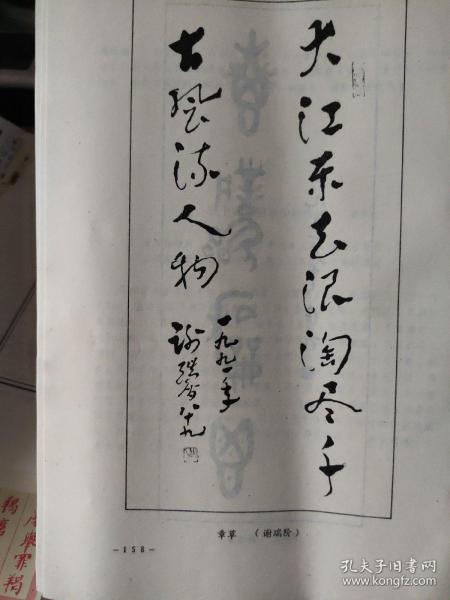 大江东去浪淘尽千
古风流人物
一九九一年
谢瑞阶八十九
章草 (谢瑞阶)
-158-
孔夫子旧书网
www.kongfz.com